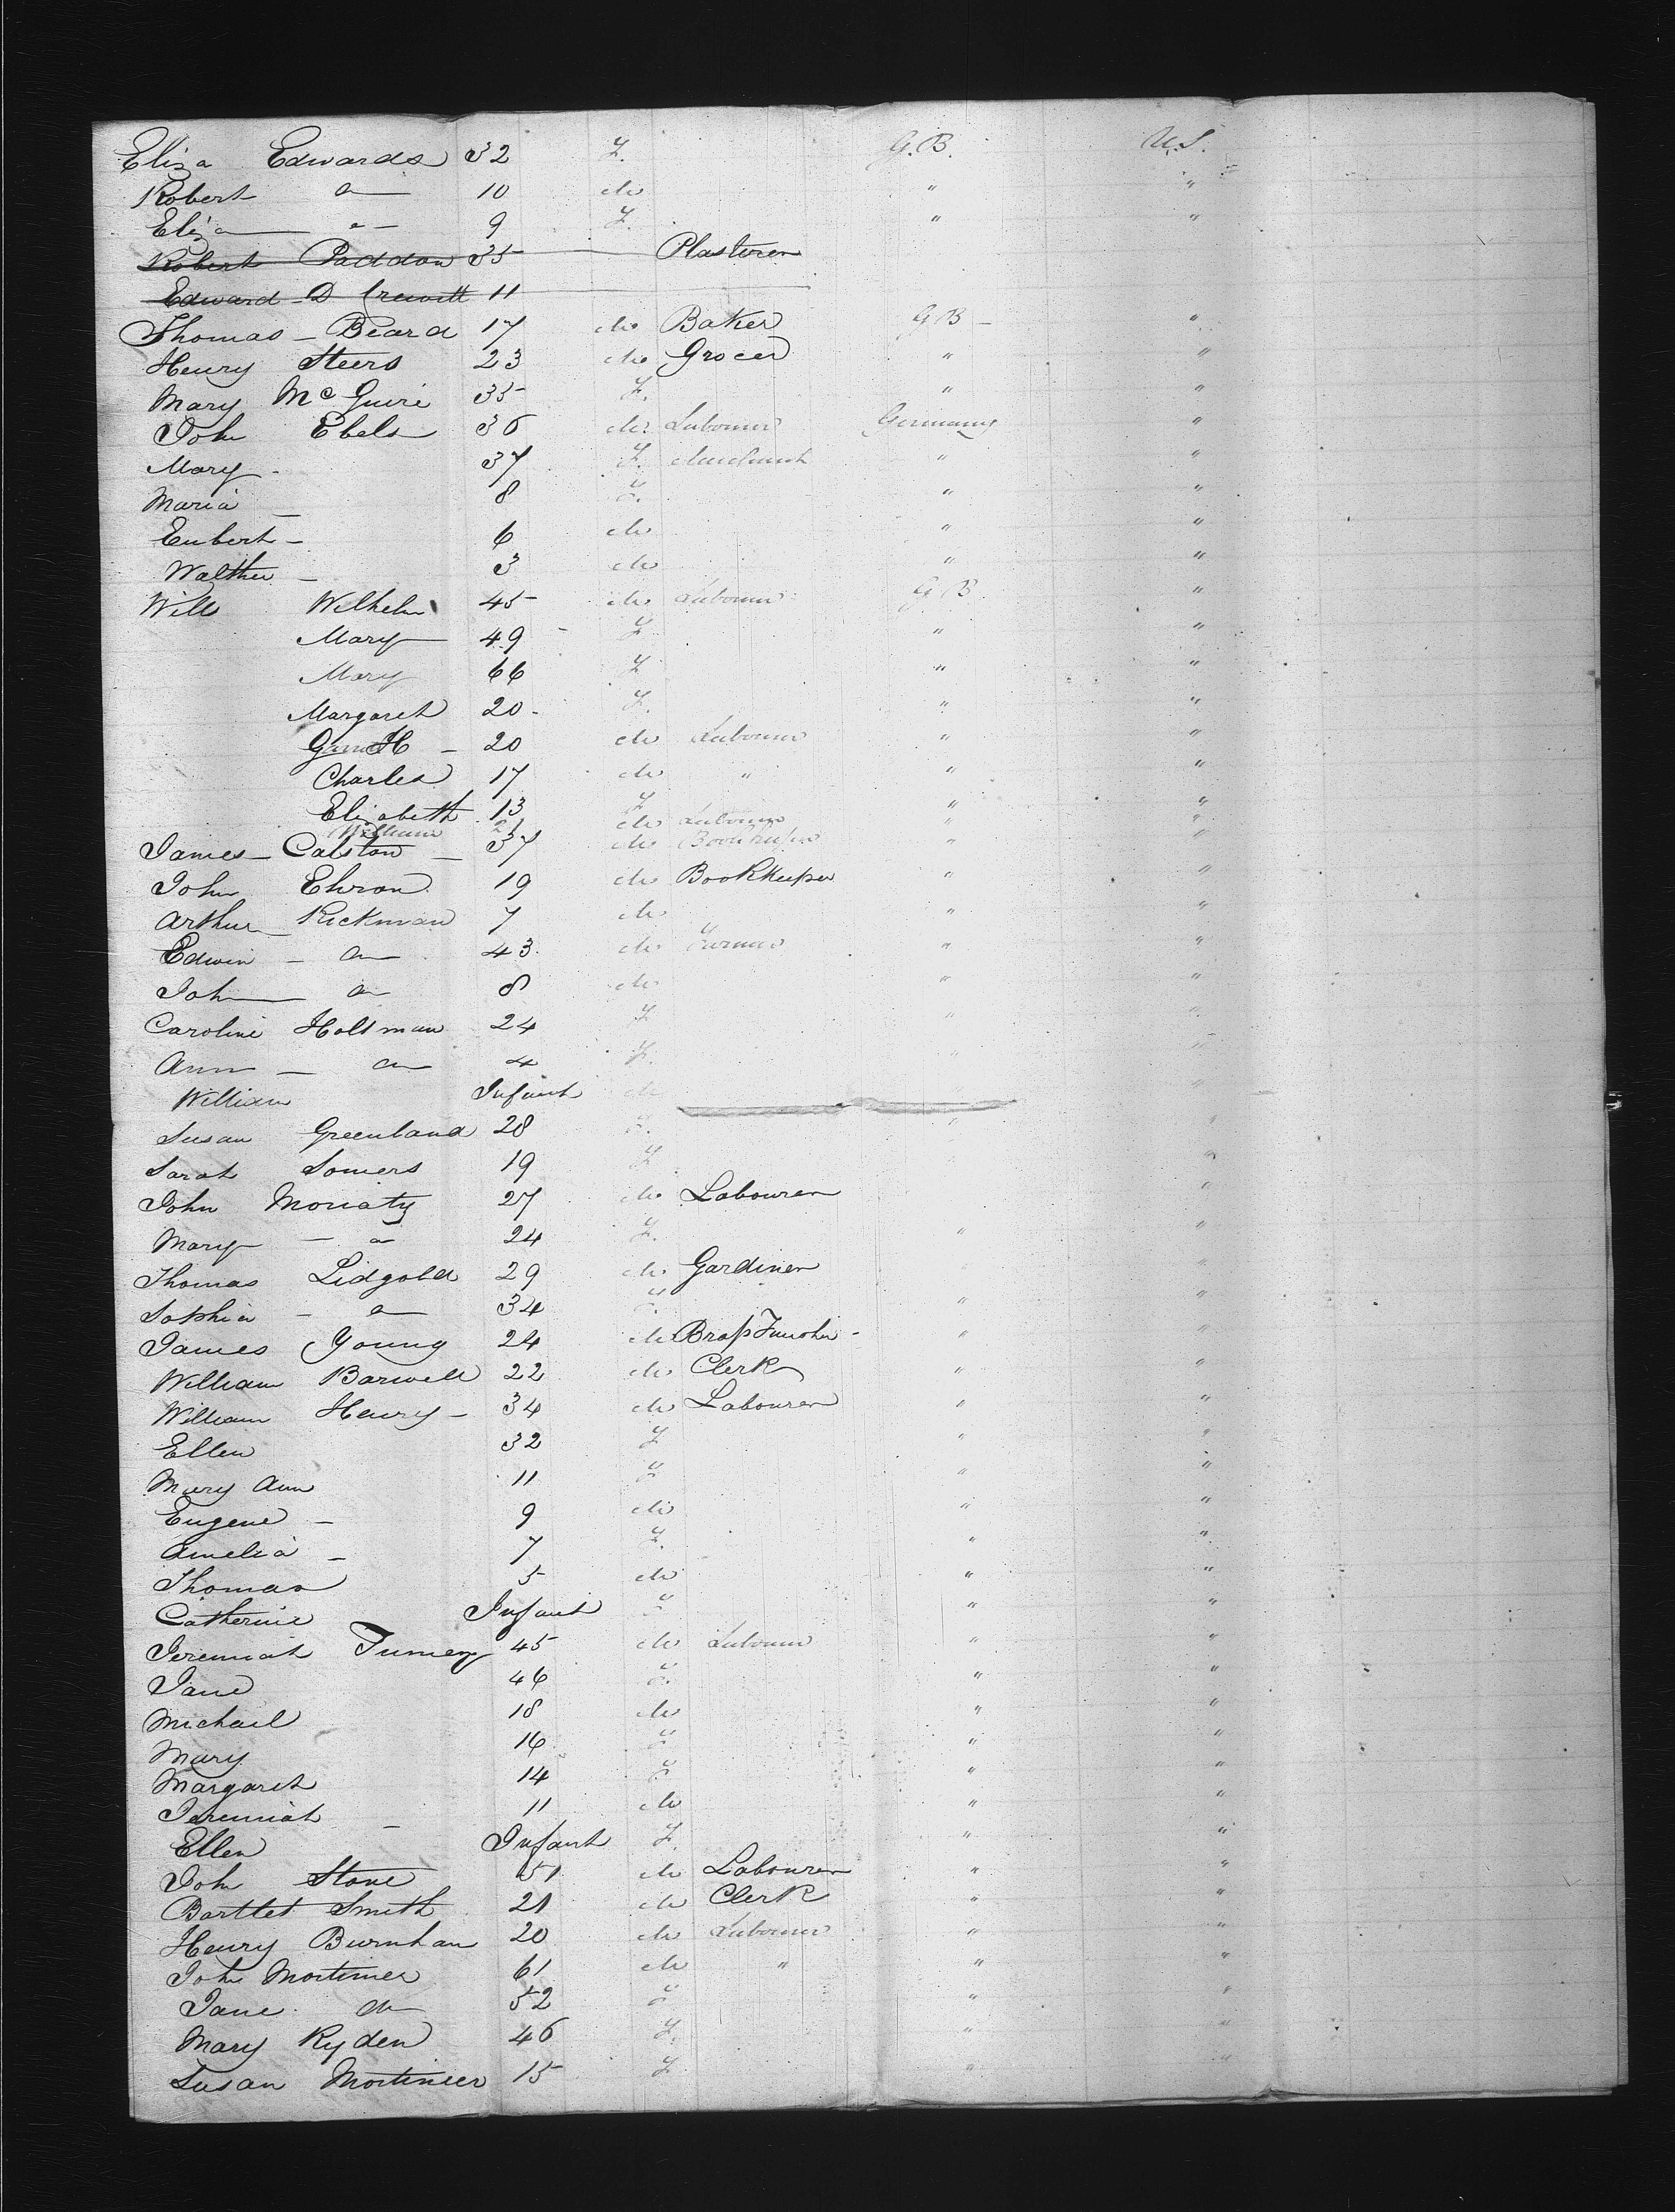 Eliza Edwards 32 F. G.B. U.S.
Robert do 10 M " "
Eliza do 9 F. " "
Robert Paddon 35 Plasterer
Edward D Crewett 11
Thomas - Beard 17 M Baker GB - "
Henry Steers 23 M Grocer " "
Mary McGuire 35 F. " "
John Ebels 36 M Labourer Germany "
Mary - 37 F. " "
Maria - 8 F. " "
Eubert - 6 M " "
Walther - 3 M " "
Will Wilhelm 45 M Labourer G B. "
Mary 49 - F " "
Mary 66 F " "
Margaret 20 - F. " "
20 M Labourer " "
Charles 17 M " " "
Elizabeth 13 F " "
William 21 M Labourer " "
James - Calston - 37 M Bookkeeper " "
John Ehron 19 M Bookkeeper " "
Arthur Rickman 7 M " "
Edwin - do 43 M Farmer " "
John do 8 M " "
Caroline Holtman 24 F " "
Ann - do 4 F. " "
William Infant M " "
Susan Greenland 28 F. " "
Sarah Somers 19 F "
John Moriaty 27 M Labourer "
Mary - do 24 F. " "
Thomas Lidgold 29 M Gardiner "
Sophia - do 34 F. " "
James Young 24 M Brass Finisher - " "
William Barwell 22 M Clerk " "
William Henry - 34 M Labourer " "
Ellen 32 F " "
Mary Ann 11 F " "
Eugene - 9 M " "
Amelia - 7 F. " "
Thomas 5 M " "
Catherine Infant F " "
Jeremiah Tumey 45 M Labourer " "
Jane 46 F. " "
Michael 18 M " "
Mary 16 F " "
Margaret 14 F " "
Jeremiah - 11 M " "
Ellen Infant F. " "
John Stone 51 M Labourer " "
Bartlet Smith 21 M Clerk " "
Henry Burnham 20 M Labourer " "
John Mortimer 61 M " " "
Jane do 52 F " "
Mary Ryden 46 F. " "
Susan Mortimer 15 F " "